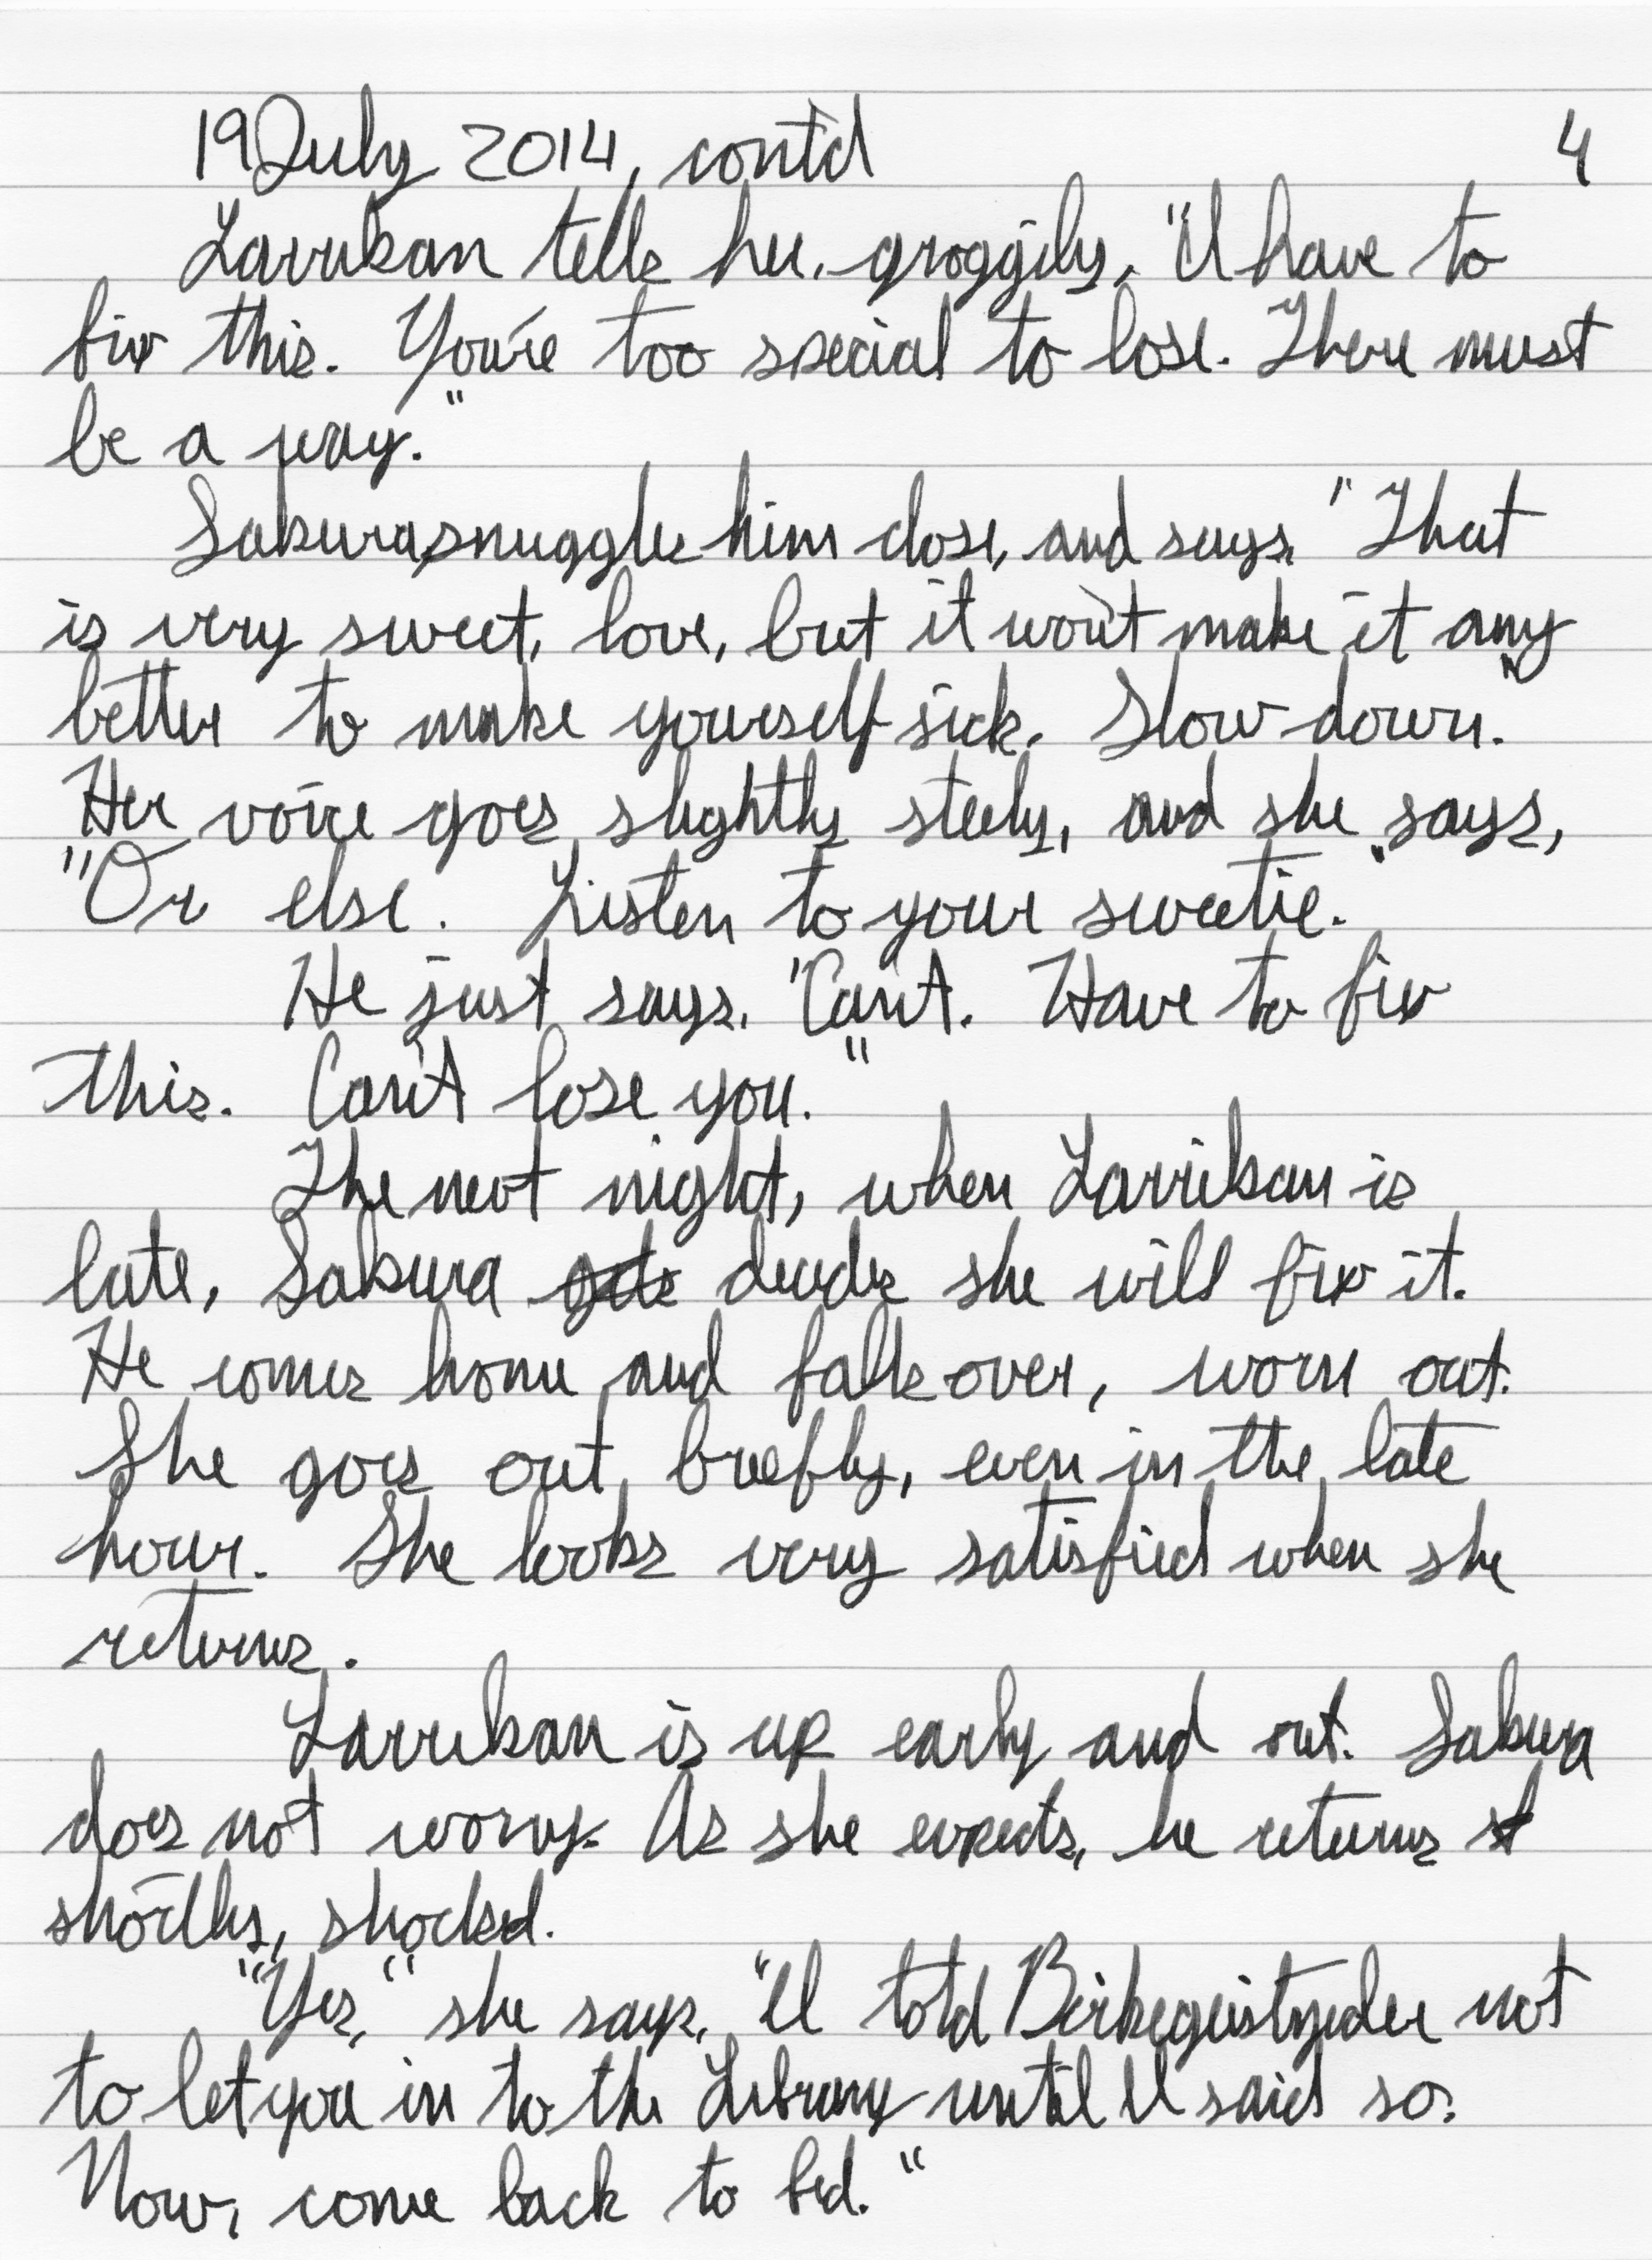 19 July 2014, cont'd 4
Larrikan tells her, groggily, "I have to
fix this. You're too special to lose. There must
be a way."
Sakura snuggles him close, and says, "That
is very sweet, love, but it won't make it any
better to make yourself sick. Slow down."
Her voice goes slightly steely, and she says,
"Or else. Listen to your sweetie."
He just says, "Can't. Have to fix
this. Can't lose you."
The next night, when Larrikan is
late, Sakura decides she will fix it.
He comes home and falls over, worn out.
She goes out, briefly, even in the late
hour. She looks very satisfied when she
returns.
Larrikan is up early and out. Sakura
does not worry. As she expects, he returns
shortly, shocked.
"Yes," she says, "I told not
to let you in to the Library until I said so.
Now, come back to bed."